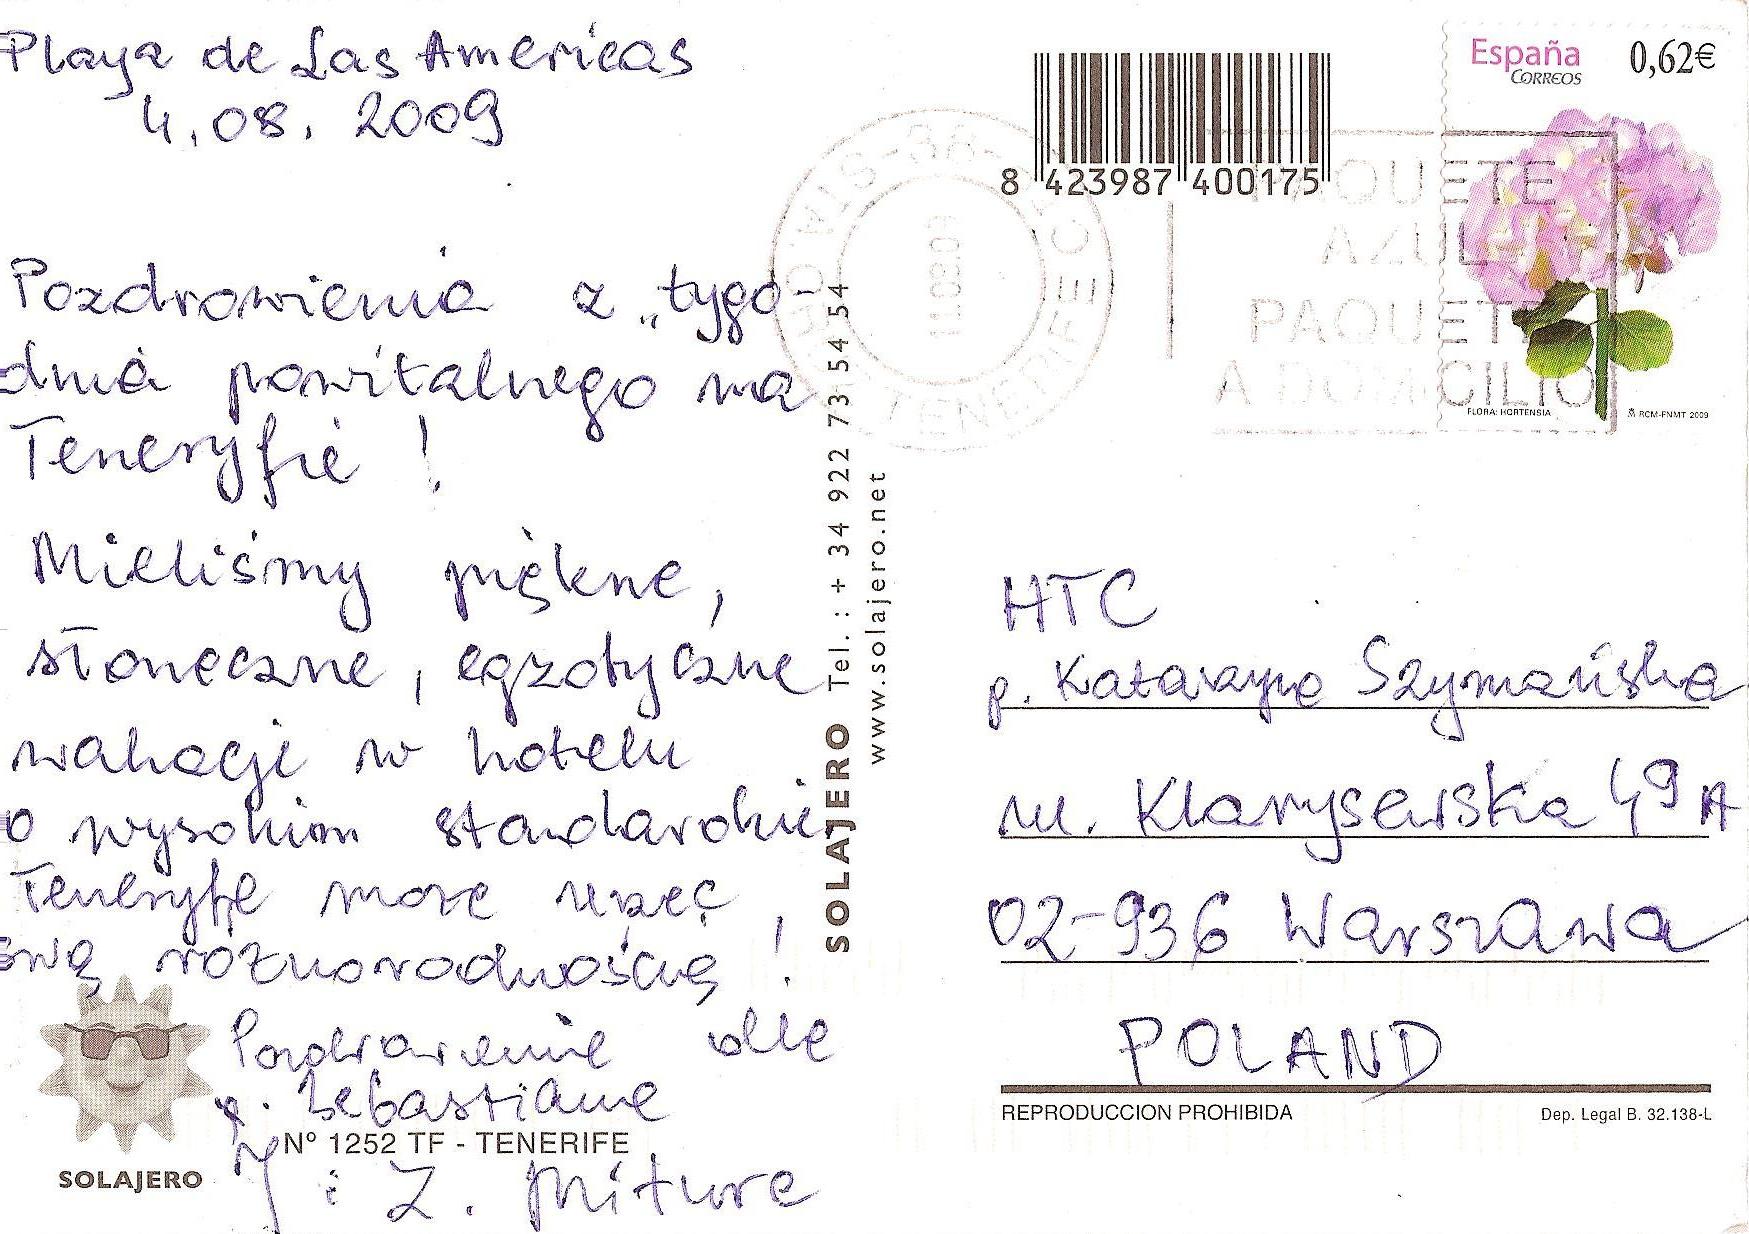 Playa de Las Americas
4.08.2009
Pozdrowienia z „tygo-
dnia powitalnego na
Teneryfie!
Mieliśmy piękne,
słoneczne, egzotyczne
wakacje w hotelu
o wysokim standardzie
Teneryfe może urzec
swą różnorodnością!
Pozdrowienie dla
p. Sebastiana
J i Z. Mitura
Nº 1252 TF - TENERIFE
SOLAJERO
SOLAJERO Tel.: + 34 922 73 54 54
www.solajero.net
8 423987 400175
España 0,62€
CORREOS
PAQUETE
AZUL
PAQUETE
A DOMICILIO
TENERIFE
FLORA: HORTENSIA
RCM-FNMT 2009
HTC
p. Katarzyna Szymańska
ul. Klarysewska 49A
02-936 Warszawa
POLAND
REPRODUCCION PROHIBIDA
Dep. Legal B. 32.138-L